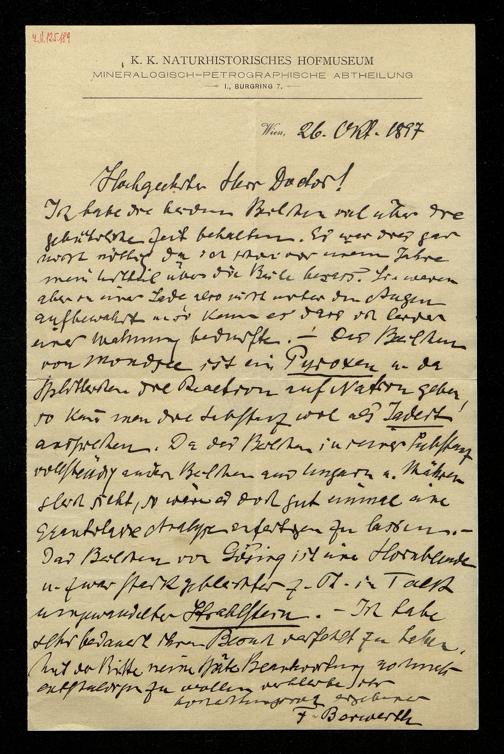 K. K. NATURHISTORISCHES HOFMUSEUM
MINERALOGISCH-PETROGRAPHISCHE ABTHEILUNG
I., BURGRING 7.
Wien, 26. Okt. 1897
Hochgeehrter Herr Doctor!
Ich habe die beiden Beilchen wol über die
gebührliche Zeit behalten. Es war dies gar
nicht nöthig da ich schon vor einem Jahre
mein Urtheil über die Beile besass. Sie waren
aber in einer Lade, also nicht unter den Augen
aufbewahrt und so kam es dass ich leider
einer Mahnung bedurfte. — Das Beilchen
von Mondsee ist ein Pyroxen u. da
Splitterchen die Reaction auf Natron geben,
so kann man die Substanz wol als Jadeit
ansprechen. Da das Beilchen in seiner Substanz
vollständig andern Beilchen aus Ungarn u. Mähren
gleich sieht, so wäre es doch gut einmal eine
quantitative Analyse anfertigen zu lassen. —
Das Beilchen von Gösing ist eine Hornblende
u. zwar stark gebleichter z. Th. in Talk
umgewandelter Strahlstein. — Ich habe
sehr bedauert Ihren Besuch verfehlt zu haben.
Mit der Bitte meine späte Beantwortung nochmals
entschuldigen zu wollen verbleibe ich
hochachtungsvoll ergebener
F. Berwerth